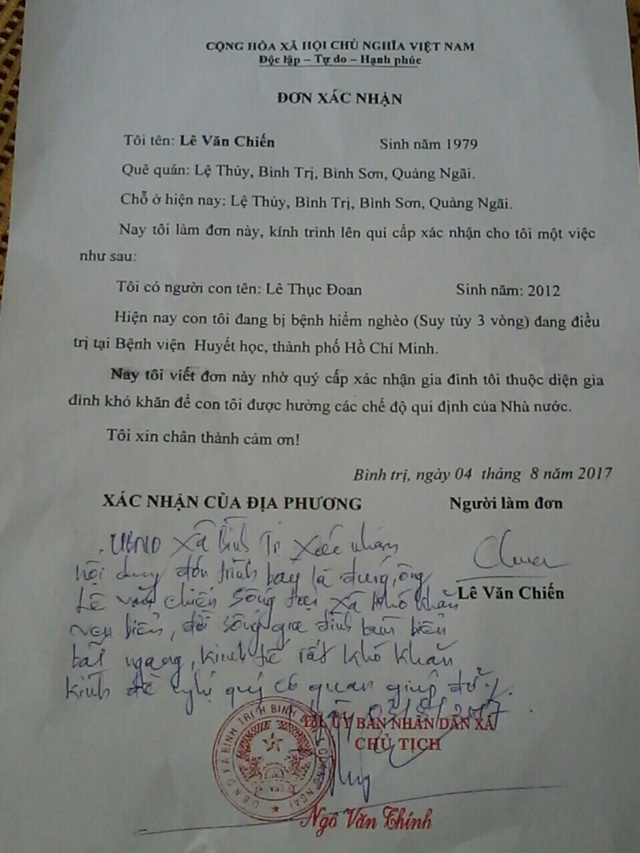 CỘNG HÒA XÃ HỘI CHỦ NGHĨA VIỆT NAM
Độc lập – Tự do – Hạnh phúc
ĐƠN XÁC NHẬN
Tôi tên: Lê Văn Chiến Sinh năm 1979
Quê quán: Lệ Thủy, Bình Trị, Bình Sơn, Quảng Ngãi.
Chỗ ở hiện nay: Lệ Thủy, Bình Trị, Bình Sơn, Quảng Ngãi.
Nay tôi làm đơn này, kính trình lên quí cấp xác nhận cho tôi một việc
như sau:
Tôi có người con tên: Lê Thục Đoan Sinh năm: 2012
Hiện nay con tôi đang bị bệnh hiểm nghèo (Suy tủy 3 vòng) đang điều
trị tại Bệnh viện Huyết học, thành phố Hồ Chí Minh.
Nay tôi viết đơn này nhờ quý cấp xác nhận gia đình tôi thuộc diện gia
đình khó khăn để con tôi được hưởng các chế độ qui định của Nhà nước.
Tôi xin chân thành cảm ơn!
Bình trị, ngày 04 tháng 8 năm 2017
XÁC NHẬN CỦA ĐỊA PHƯƠNG Người làm đơn
UBND xã Bình Trị xác nhận
nội dung đơn trình bày là đúng, ông
Lê Văn Chiến sống tại xã khó khăn
ven biển, đời sống gia đình
bãi ngang, kinh tế rất khó khăn
kính đề nghị quý cơ quan giúp đỡ./.
Lê Văn Chiến
TM. ỦY BAN NHÂN DÂN XÃ
CHỦ TỊCH
Ngô Văn Thính